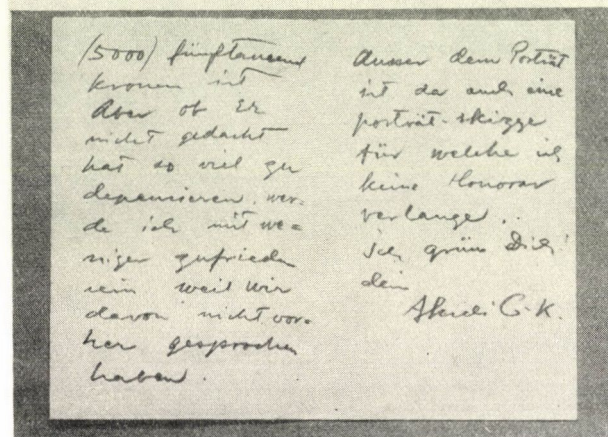 (5000) fünftausend
kronen ist
Aber ob Er
nicht gedacht
hat so viel zu
depensieren, wer-
de ich mit we-
niger zufrieden
sein weil wir
davon nicht vor-
her gesprochen
haben.
Ausser dem Porträt
ist da auch eine
porträt-skizze
für welche ich
keine Honorar
verlange.
Ich grüss Dich!
dein
G-K.